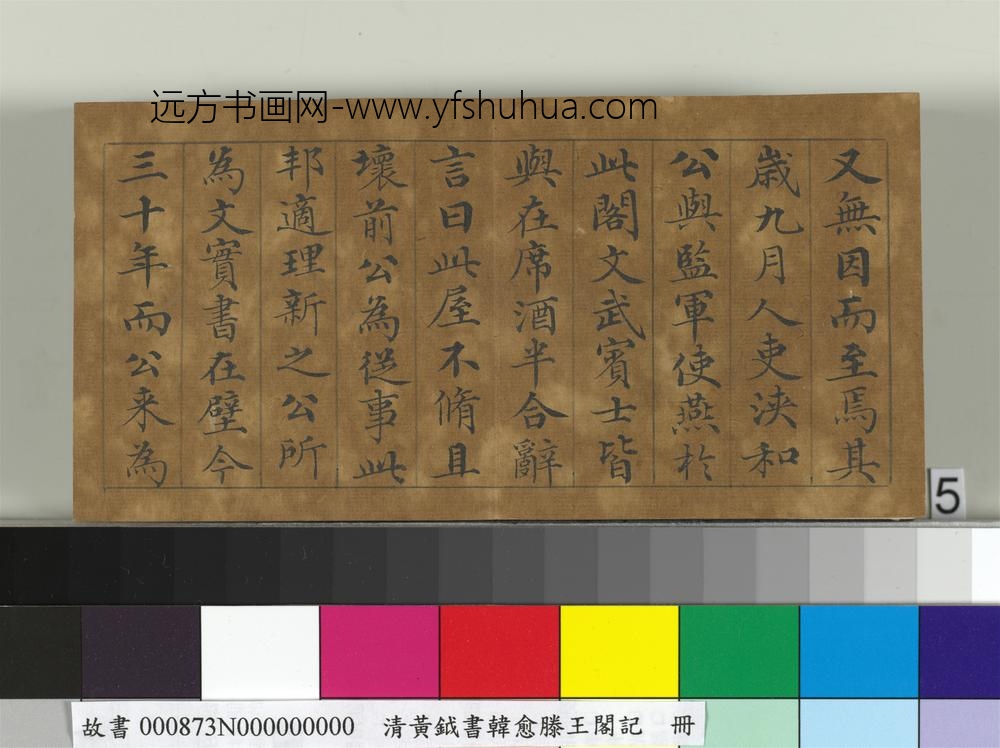 远方书画网-www.yfshuhua.com
又無因而至焉其
歲九月人吏浹和
公與監軍使燕於
此閣文武賓士皆
與在席酒半合辭
言曰此屋不脩且
壞前公為從事此
邦適理新之公所
為文實書在壁今
三十年而公来為
5
故書 000873N000000000 清黃鉞書韓愈滕王閣記 冊